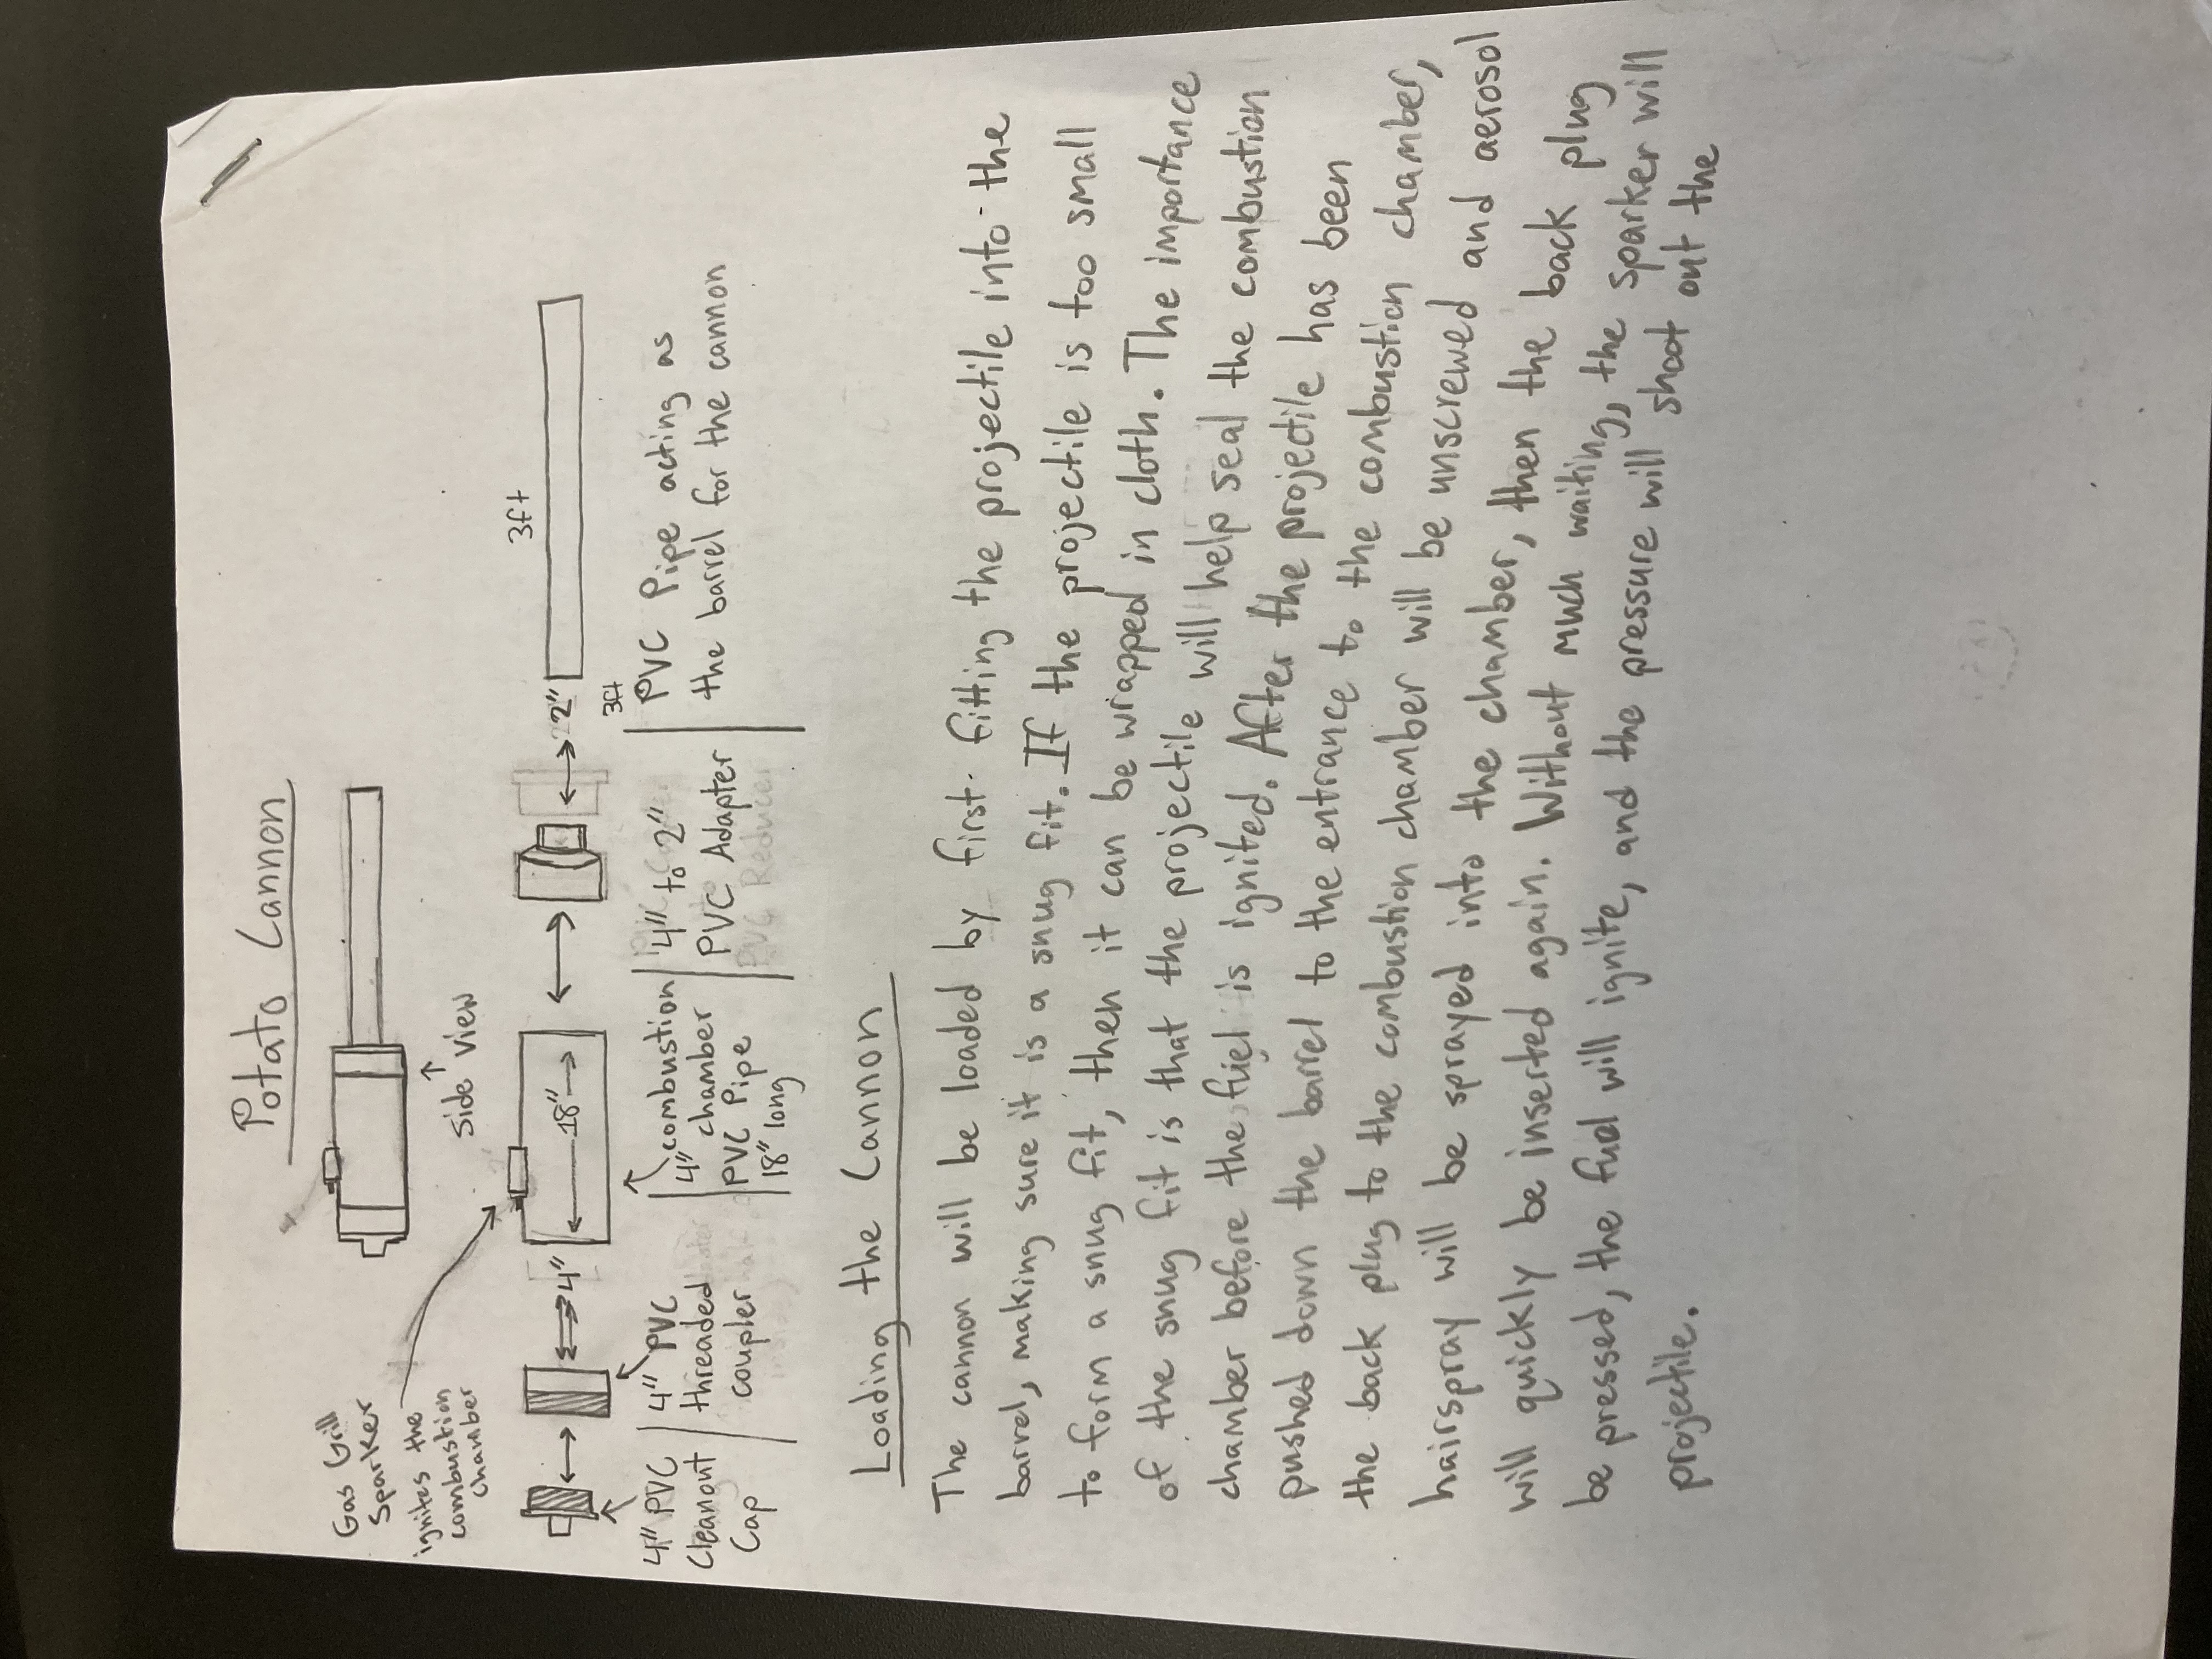 Potato Cannon
Gas Grill
Sparker
ignites the
combustion
chamber
side view
4"
18"
2"
3ft
4" PVC
Cleanout
Cap
4" PVC
threaded
coupler
combustion
4" chamber
PVC Pipe
18" long
4" to 2"
PVC Adapter
PVC Reducer
3ft
PVC Pipe acting as
the barrel for the cannon
Loading the Cannon
The cannon will be loaded by first fitting the projectile into the
barrel, making sure it is a snug fit. If the projectile is too small
to form a snug fit, then it can be wrapped in cloth. The importance
of the snug fit is that the projectile will help seal the combustion
chamber before the fuel is ignited. After the projectile has been
pushed down the barrel to the entrance to the combustion chamber,
the back plug to the combustion chamber will be unscrewed and aerosol
hairspray will be sprayed into the chamber, then the back plug
will quickly be inserted again. Without much waiting, the sparker will
be pressed, the fuel will ignite, and the pressure will shoot out the
projectile.